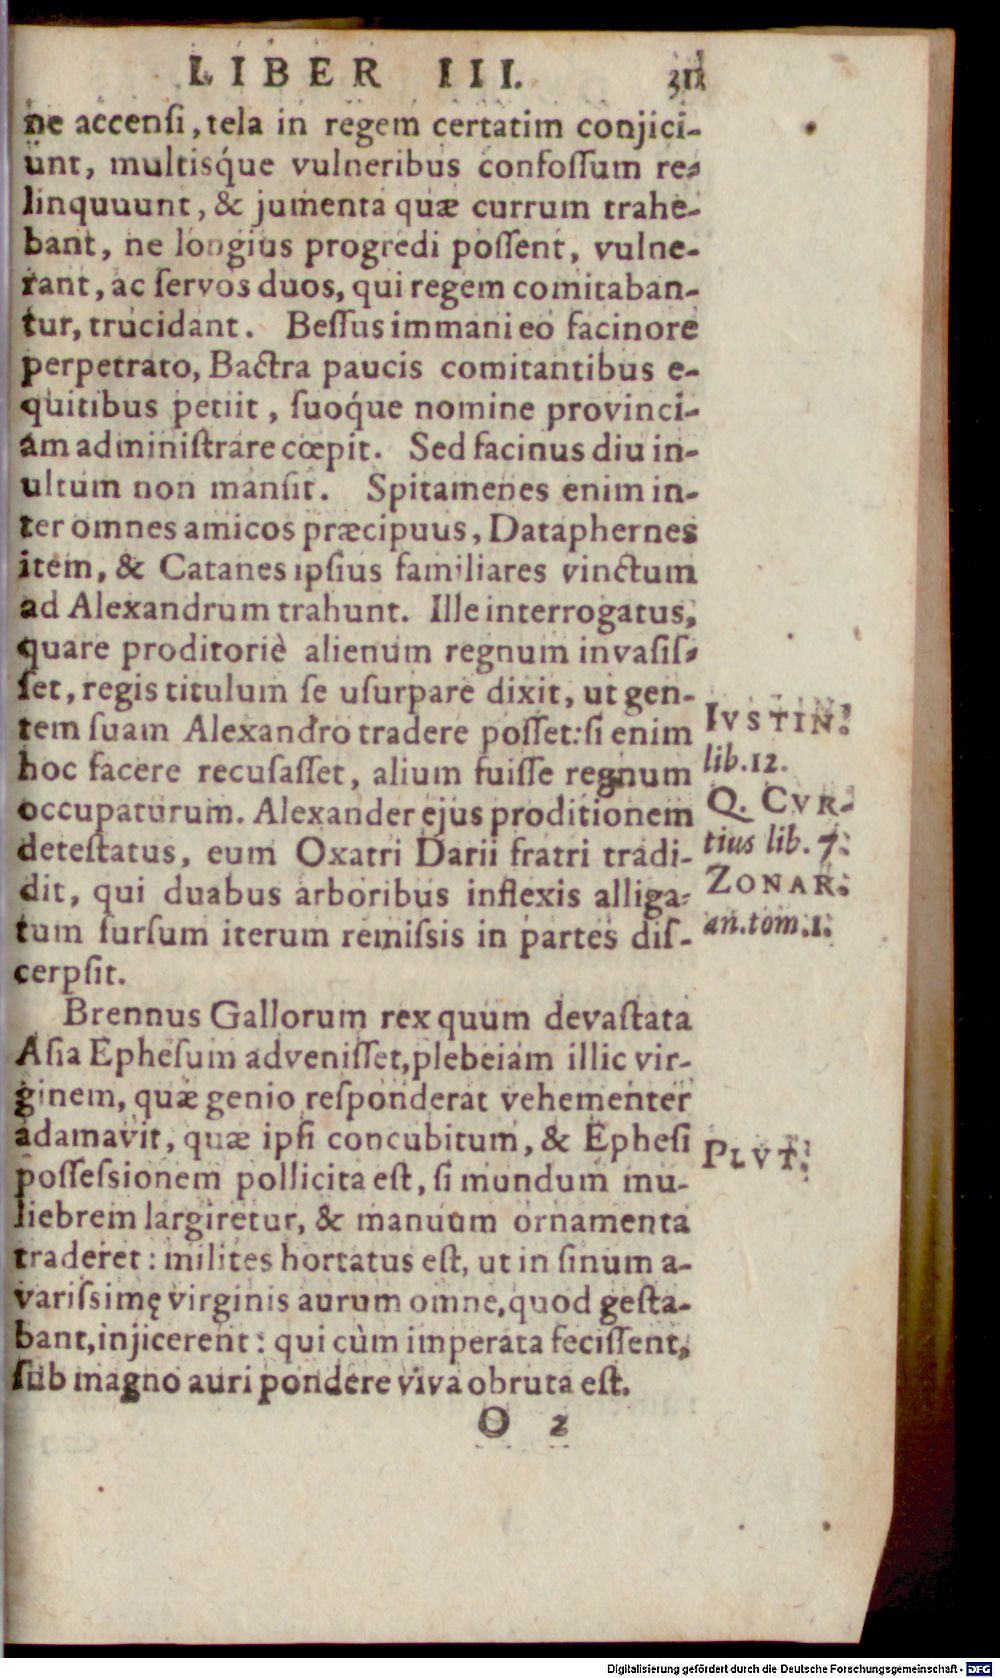 LIBER III. 311
ne accensi, tela in regem certatim conjici-
unt, multisq́ue vulneribus confossum re-
linquuunt, & jumenta quæ currum trahe-
bant, ne longius progredi possent, vulne-
rant, ac servos duos, qui regem comitaban-
tur, trucidant. Bessus immani eo facinore
perpetrato, Bactra paucis comitantibus e-
quitibus petiit, suoq́ue nomine provinci-
am administrare cœpit. Sed facinus diu in-
ultum non mansit. Spitamenes enim in-
ter omnes amicos præcipuus, Dataphernes
item, & Catanes ipsius familiares vinctum
ad Alexandrum trahunt. Ille interrogatus,
quare proditoriè alienum regnum invasis-
set, regis titulum se usurpare dixit, ut gen-
tem suam Alexandro tradere posset: si enim
hoc facere recusasset, alium fuisse regnum
occupaturum. Alexander ejus proditionem
detestatus, eum Oxatri Darii fratri tradi-
dit, qui duabus arboribus inflexis alliga-
tum sursum iterum remissis in partes dis-
cerpsit.
IVSTIN.
lib. 12.
Q. CVR-
tius lib. 7.
ZONAR.
an. tom. 1.
Brennus Gallorum rex quum devastata
Asia Ephesum advenisset, plebeiam illic vir-
ginem, quæ genio responderat vehementer
adamavit, quæ ipsi concubitum, & Ephesi
possessionem pollicita est, si mundum mu-
liebrem largiretur, & manuum ornamenta
traderet: milites hortatus est, ut in sinum a-
varissimę virginis aurum omne, quod gesta-
bant, injicerent: qui cùm imperata fecissent,
sub magno auri pondere viva obruta est.
PLVT.
O 2
Digitalisierung gefördert durch die Deutsche Forschungsgemeinschaft - DFG